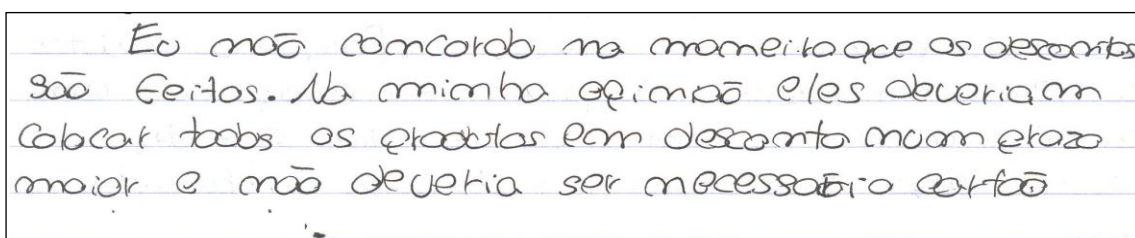 Eu não concordo na maneira que os descontos
são feitos. Na minha opinião eles deveriam
colocar todos os produtos em desconto num prazo
maior e não deveria ser necessário cartão